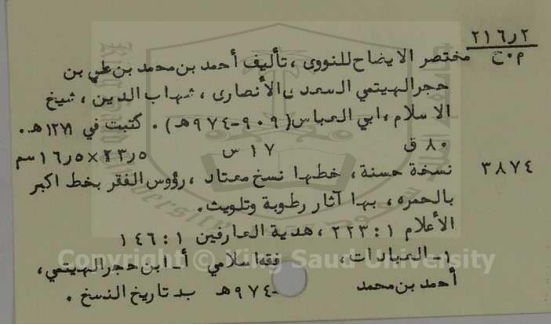 ٢١٦٫٢
م٠خ
مختصر الايضاح للنووى ، تأليف أحمد بن محمد بن علي بن
حجر الهيتمي السعدى الأنصارى ، شهاب الدين ، شيخ
الاسلام ، ابي العباس (٩٠٩-٩٧٤هـ) . كتبت في ١٢٧١هـ .
٨٠ ق ١٧ س ٢٣٫٥×١٦٫٥ سم
٣٨٧٤ نسخة حسنة ، خطها نسخ معتاد ، رؤوس الفقر بخط اكبر
بالحمره ، بها آثار رطوبة وتلويث .
الأعلام ١ : ٢٢٣ ، هدية العارفين ١ : ١٤٦
١- العبادات ، فقه اسلامي أ- ابن حجر الهيتمي ،
أحمد بن محمد -٩٧٤هـ ب- تاريخ النسخ .
Copyright © King Saud University